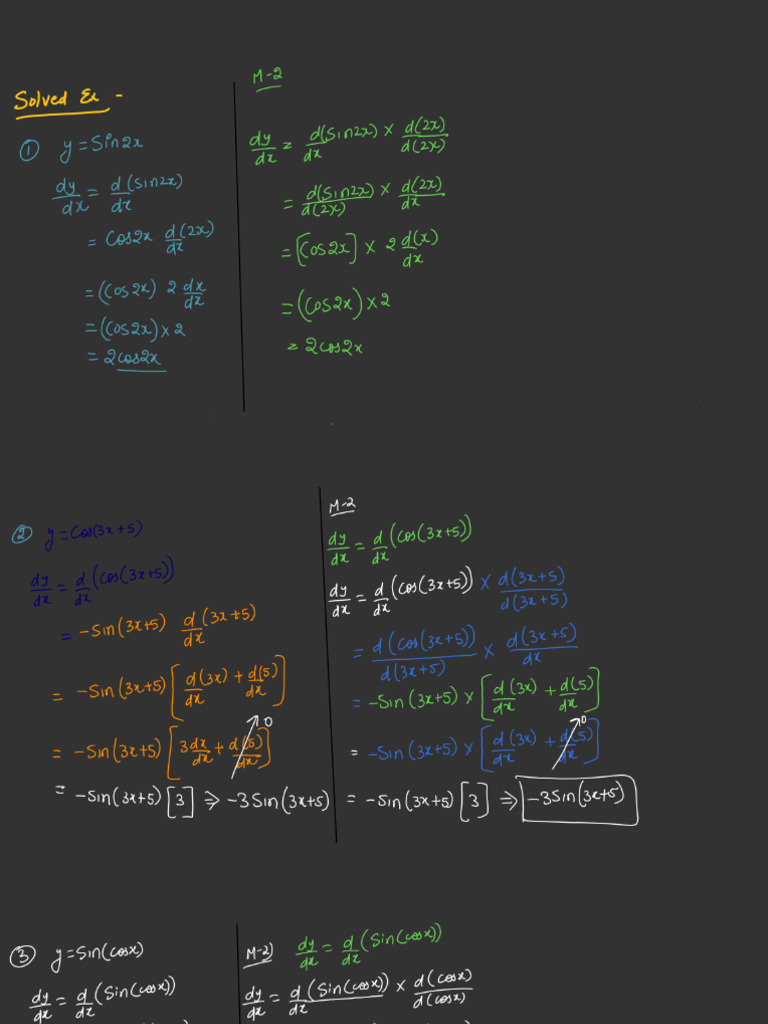 Solved Ex -
① y = Sin2x
dy/dx = d/dx (Sin2x)
= Cos2x d(2x)/dx
= (Cos2x) 2 dx/dx
= (Cos2x) × 2
= 2cos2x
M-2
dy/dx = d(Sin2x)/dx × d(2x)/d(2x)
= d(Sin2x)/d(2x) × d(2x)/dx
= [Cos2x] × 2 d(x)/dx
= (Cos2x) × 2
= 2cos2x
② y = Cos(3x+5)
dy/dx = d/dx (Cos(3x+5))
= -Sin(3x+5) d/dx (3x+5)
= -Sin(3x+5) [d(3x)/dx + d(5)/dx]
= -Sin(3x+5) [3dx/dx + d(5)/dx] 0
= -Sin(3x+5) [3] ⇒ -3Sin(3x+5)
M-2
dy/dx = d/dx (Cos(3x+5))
dy/dx = d/dx (Cos(3x+5)) × d(3x+5)/d(3x+5)
= d(Cos(3x+5))/d(3x+5) × d(3x+5)/dx
= -Sin(3x+5) × [d(3x)/dx + d(5)/dx]
= -Sin(3x+5) × [d(3x)/dx + d(5)/dx] 0
= -Sin(3x+5) [3] ⇒ -3Sin(3x+5)
③ y = Sin(cosx)
dy/dx = d/dx (Sin(cosx))
M-2) dy/dx = d/dx (Sin(cosx))
dy/dx = d(Sin(cosx))/dx × d(cosx)/d(cosx)